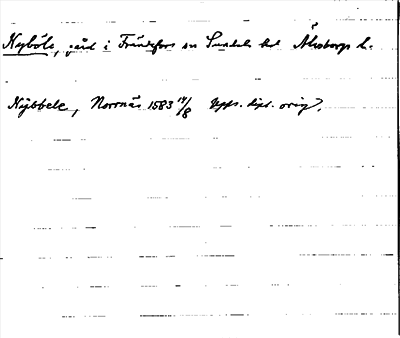 Nyböle, gård i Frändefors sn Sundals hd Älvsborgs l.
Nybbele, Norrnäs 1583 14/8 Upps. dipl. orig.